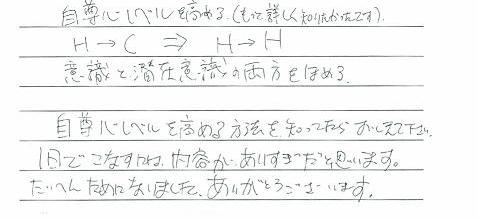 自尊心レベルを高める.(もっと詳しく知りたかったです).
H→C ⇒ H→H
意識と潜在意識の両方をほめる.
自尊心レベルを高める方法を知ってたらおしえて下さい.
1日でこなすには、内容がありすぎだと思います。
たいへんためになりました、ありがとうございます.